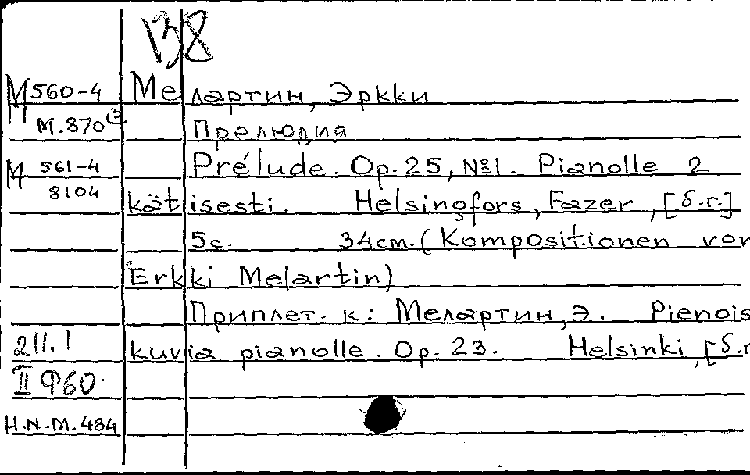 138
M 560-4 Мелартин, Эркки
M. 870
Прелюдия
M 561-4
8104
Prélude. Op. 25, №1. Pianolle 2
kätisesti. Helsingfors, Fazer, [б.г.]
5c. 34cm. (Kompositionen von
Erkki Melartin)
Приплет. к: Мелартин, Э. Pienois
kuvia pianolle. Op. 23. Helsinki, [б.г
211.1
II 960
H.N.M. 484